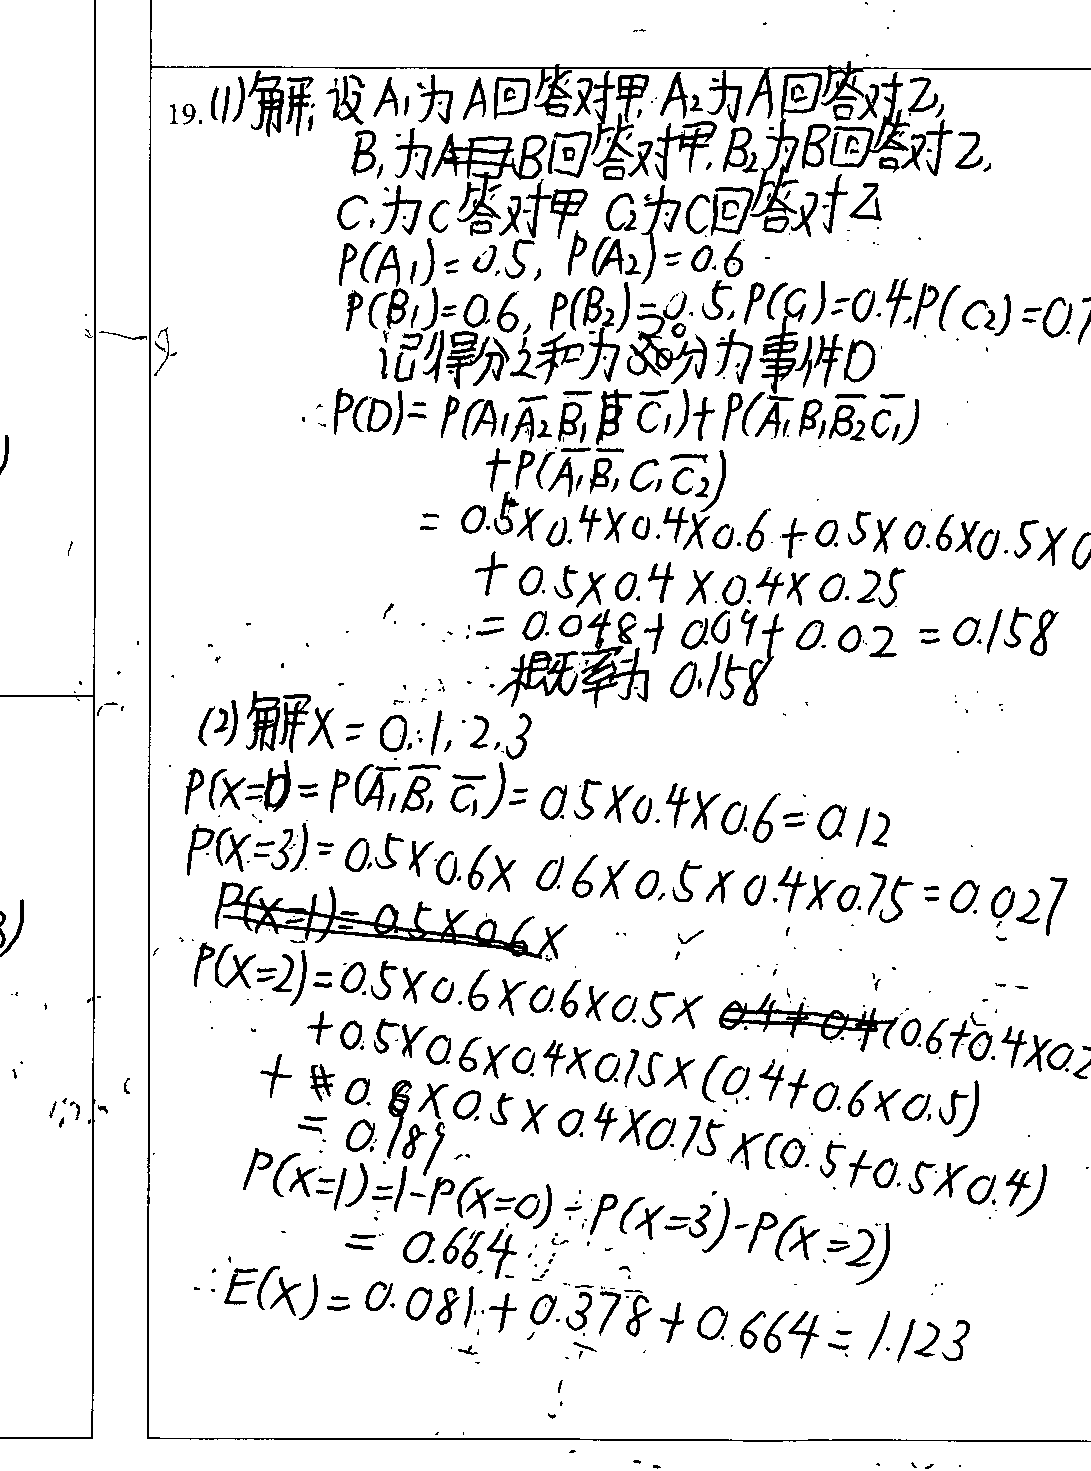 19.(1)解:设A₁为A回答对甲,A₂为A回答对乙,
B₁为B回答对甲,B₂为B回答对乙,
C₁为C答对甲 C₂为C回答对乙
P(A₁)=0.5, P(A₂)=0.6
P(B₁)=0.6, P(B₂)=0.5,P(C₁)=0.4,P(C₂)=0.7
记得分之和为20分为事件D
∴P(D)=P(A₁A̅₂B̅₁C̅₁)+P(A̅₁B₁B̅₂C̅₁)
+P(A̅₁B̅₁C₁C̅₂)
=0.5×0.4×0.4×0.6+0.5×0.6×0.5×0
+0.5×0.4×0.4×0.25
=0.048+0.09+0.02=0.158
概率为0.158
(2)解X=0,1,2,3
P(X=0)=P(A̅₁B̅₁C̅₁)=0.5×0.4×0.6=0.12
P(X=3)=0.5×0.6×0.6×0.5×0.4×0.75=0.027
P(X=2)=0.5×0.6×0.6×0.5×(0.6+0.4×0.2
+0.5×0.6×0.4×0.75×(0.4+0.6×0.5)
+0.6×0.5×0.4×0.75×(0.5+0.5×0.4)
=0.189
P(X=1)=1-P(X=0)-P(X=3)-P(X=2)
=0.664
∴E(X)=0.081+0.378+0.664=1.123